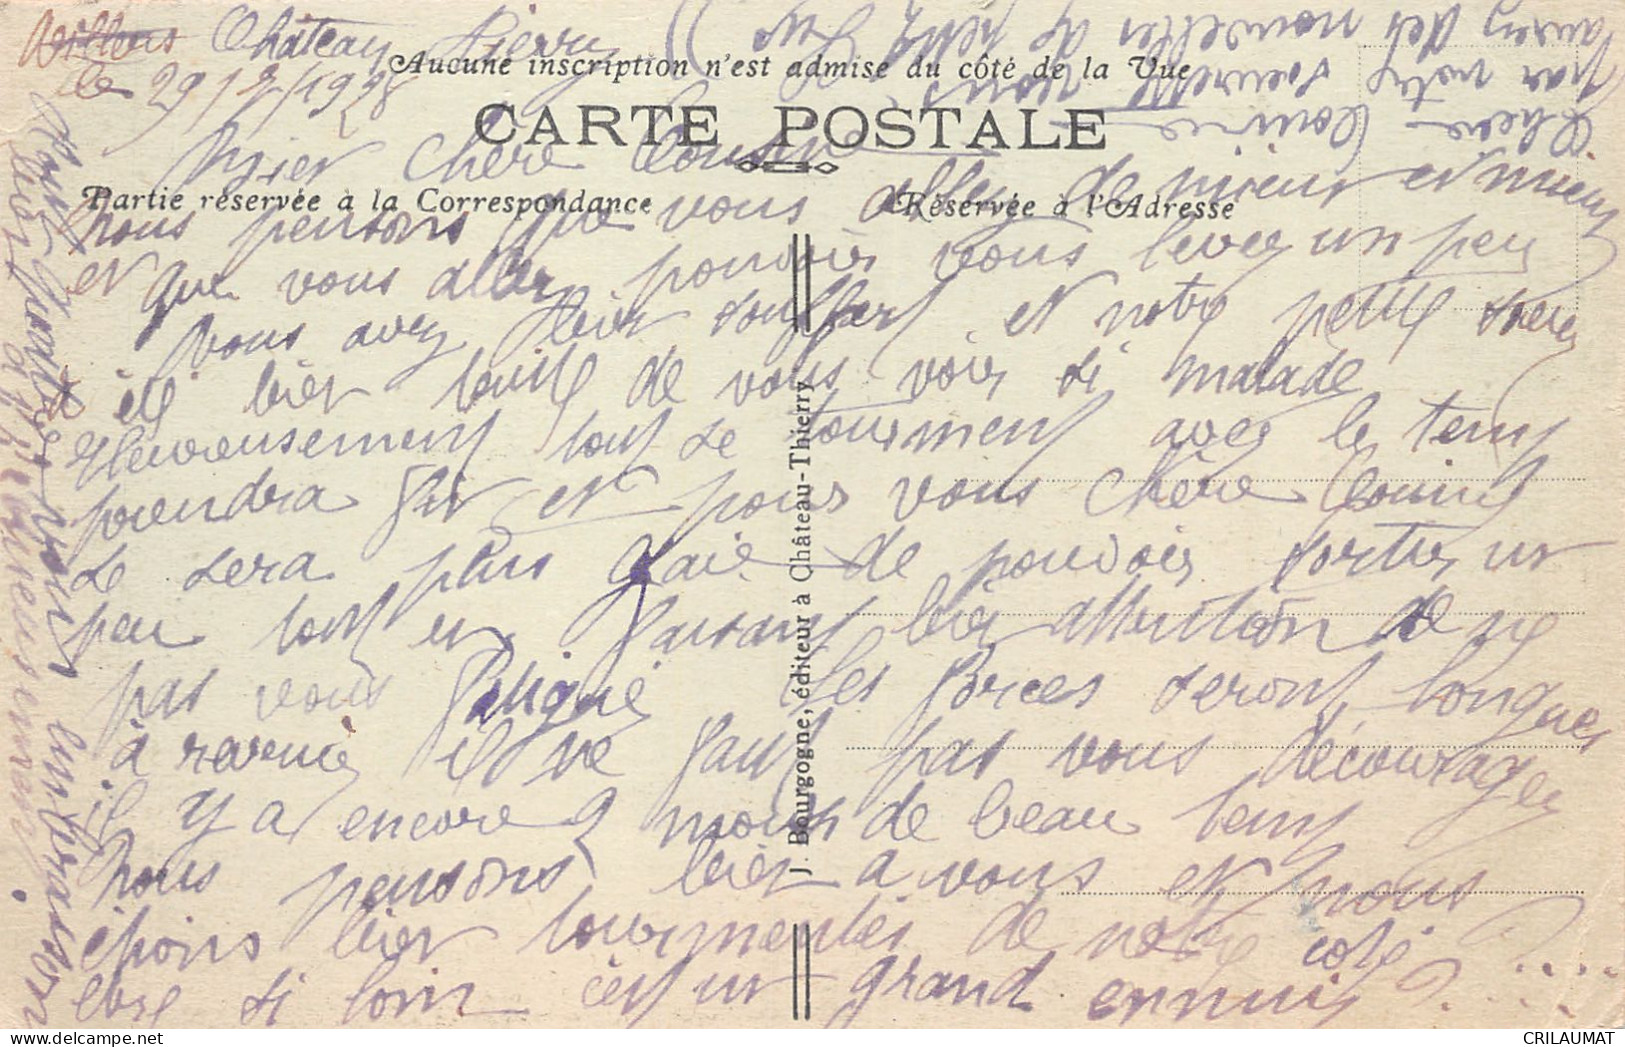 Château Thierry
le 29/7/1928
Aucune inscription n'est admise du côté de la Vue
CARTE POSTALE
Partie réservée à la Correspondance
Réservée à l'Adresse
Bien chère Cousine
nous pensons que vous allez de mieux et mieux
et que vous allez pouvoir vous lever un peu
vous avez bien souffert et notre petite soeur
été bien triste de vous voir si malade
Heureusement tout se tourment avec le temps
prendra fin et pour vous chère Cousine
se sera plus gaie de pouvoir sortir un
peu tout en faisant bien attention de ne
pas vous fatigué les forces seront longues
à revenir il ne faut pas vous décourager
il y a encore 2 mois de beau temps
nous pensons bien à vous et nous
étions bien tourmentés de notre coté
être si loin c'est un grand ennui
Chère Cousine nous
par notre soeurette
aurez des nouvelles de
J. Bourgogne, éditeur à Château-Thierry
CRILAUMAT